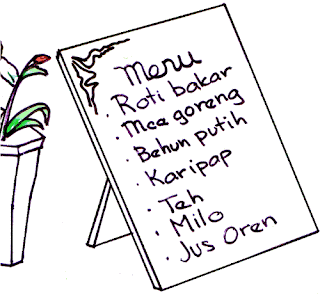 Menu
· Roti bakar
· Mee goreng
· Behun putih
· Karipap
· Teh
· Milo
· Jus Oren